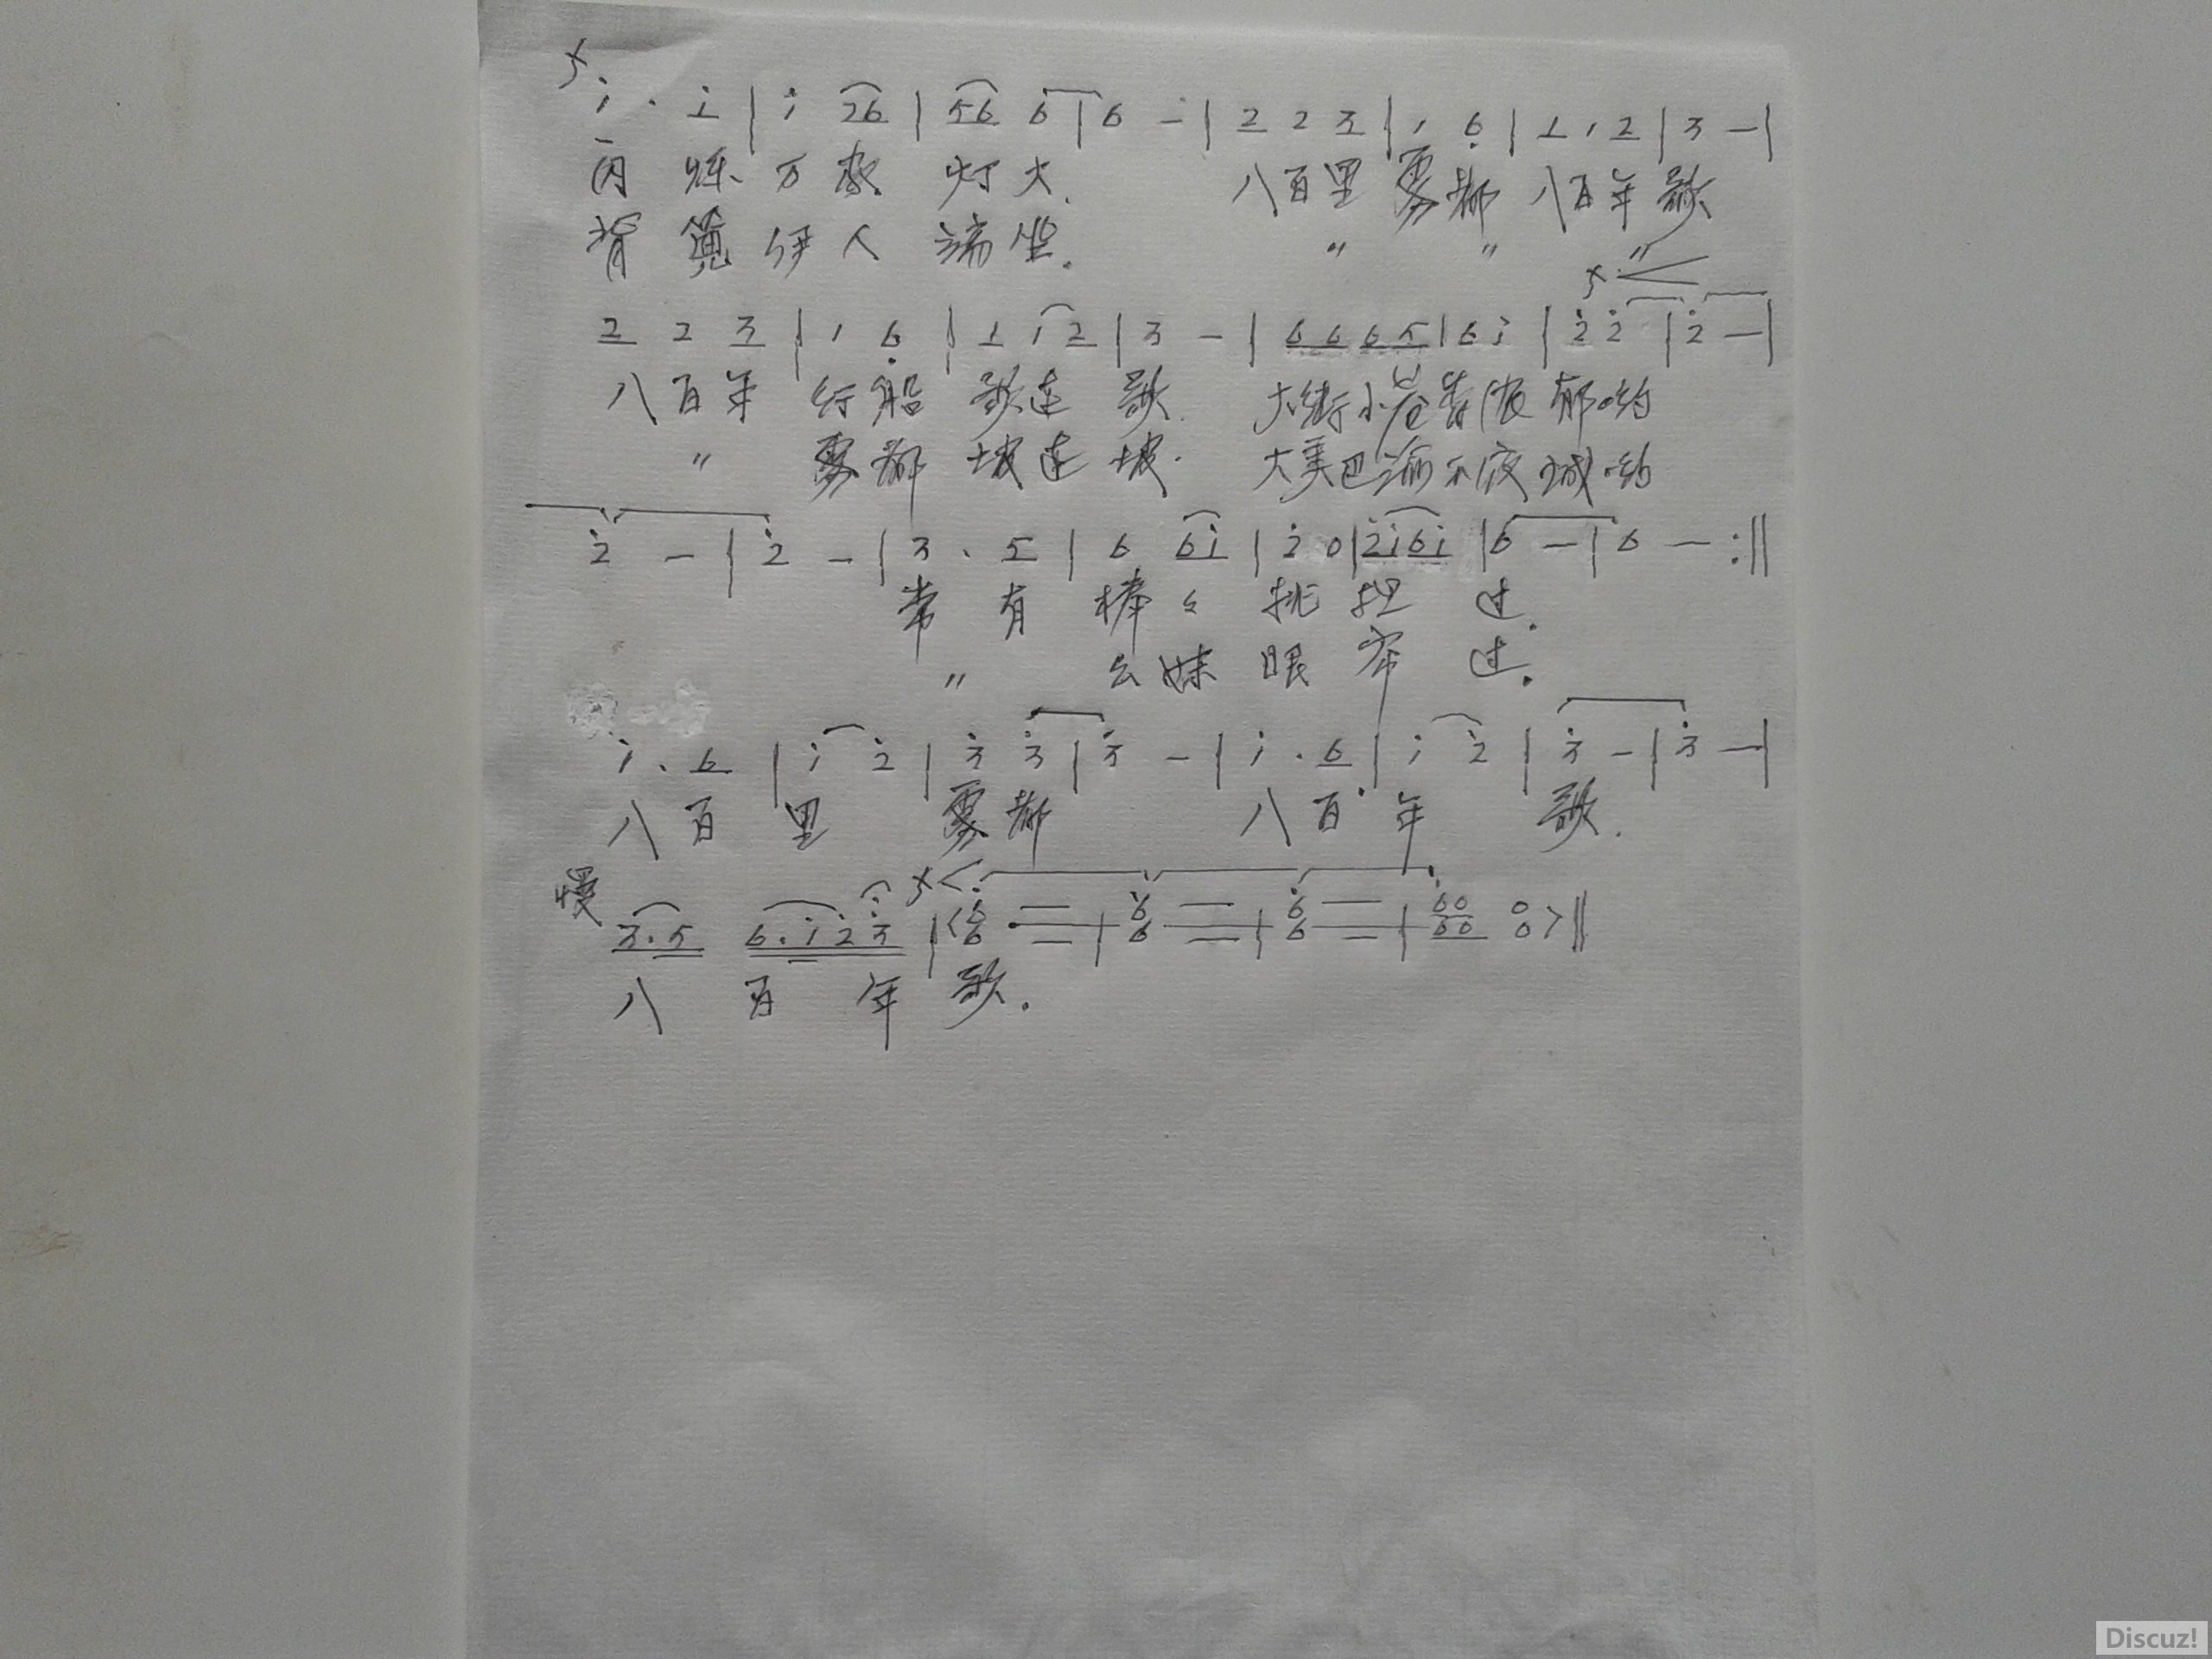 f
i · i | i 26 | 56 6 | 6 - | 2 2 3 | 1 6 | 1 1 2 | 3 - |
万 灯火. 八百里雾都 八百年歌
背篼伊人 端坐. " " "
f
2 2 3 | 1 6 | 1 1 2 | 3 - | 6 6 6 5 | 6 i | 2 2 | 2 - |
八百年 行船 歌连歌. 大街小巷香浓郁哟
" 雾都 坡连坡. 大美巴渝不夜城哟
2 - | 2 - | 3 · 5 | 6 6i | 2 0 | 2i6i | 6 - | 6 - :||
常有棒々挑担过.
" 幺妹眼帘过.
i · 6 | i 2 | 3 3 | 3 - | i · 6 | i 2 | 3 - | 3 - |
八百里 雾都 八百年 歌.
慢 f <
3·5 6·i23 | <6 - | 6 - | 6 - | 60 0 >||
6 - | 6 - | 6 - | 60 0
八百年歌.
Discuz!